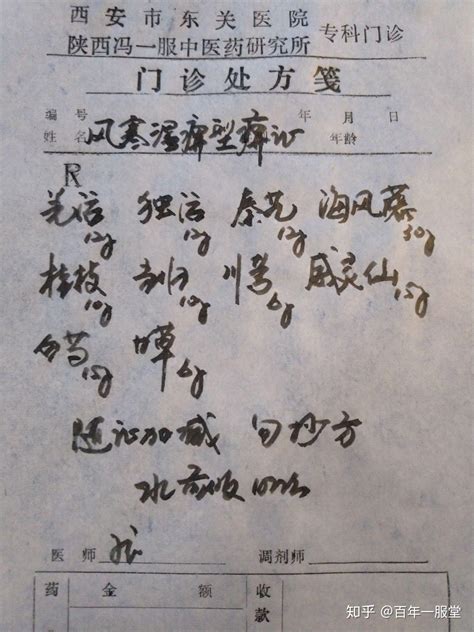 西安市东关医院
陕西冯一服中医药研究所 专科门诊
门诊处方笺
编号 年 月 日
姓名 风寒湿痹型痹证 年龄
R
羌活12g 独活12g 秦艽12g 海风藤30g
桂枝10g 当归12g 川芎6g 威灵仙15g
白芍15g 甘草6g
随证加减 勿抄方
水煎服
医师 调剂师
药 金额 收
款
知乎 @百年一服堂